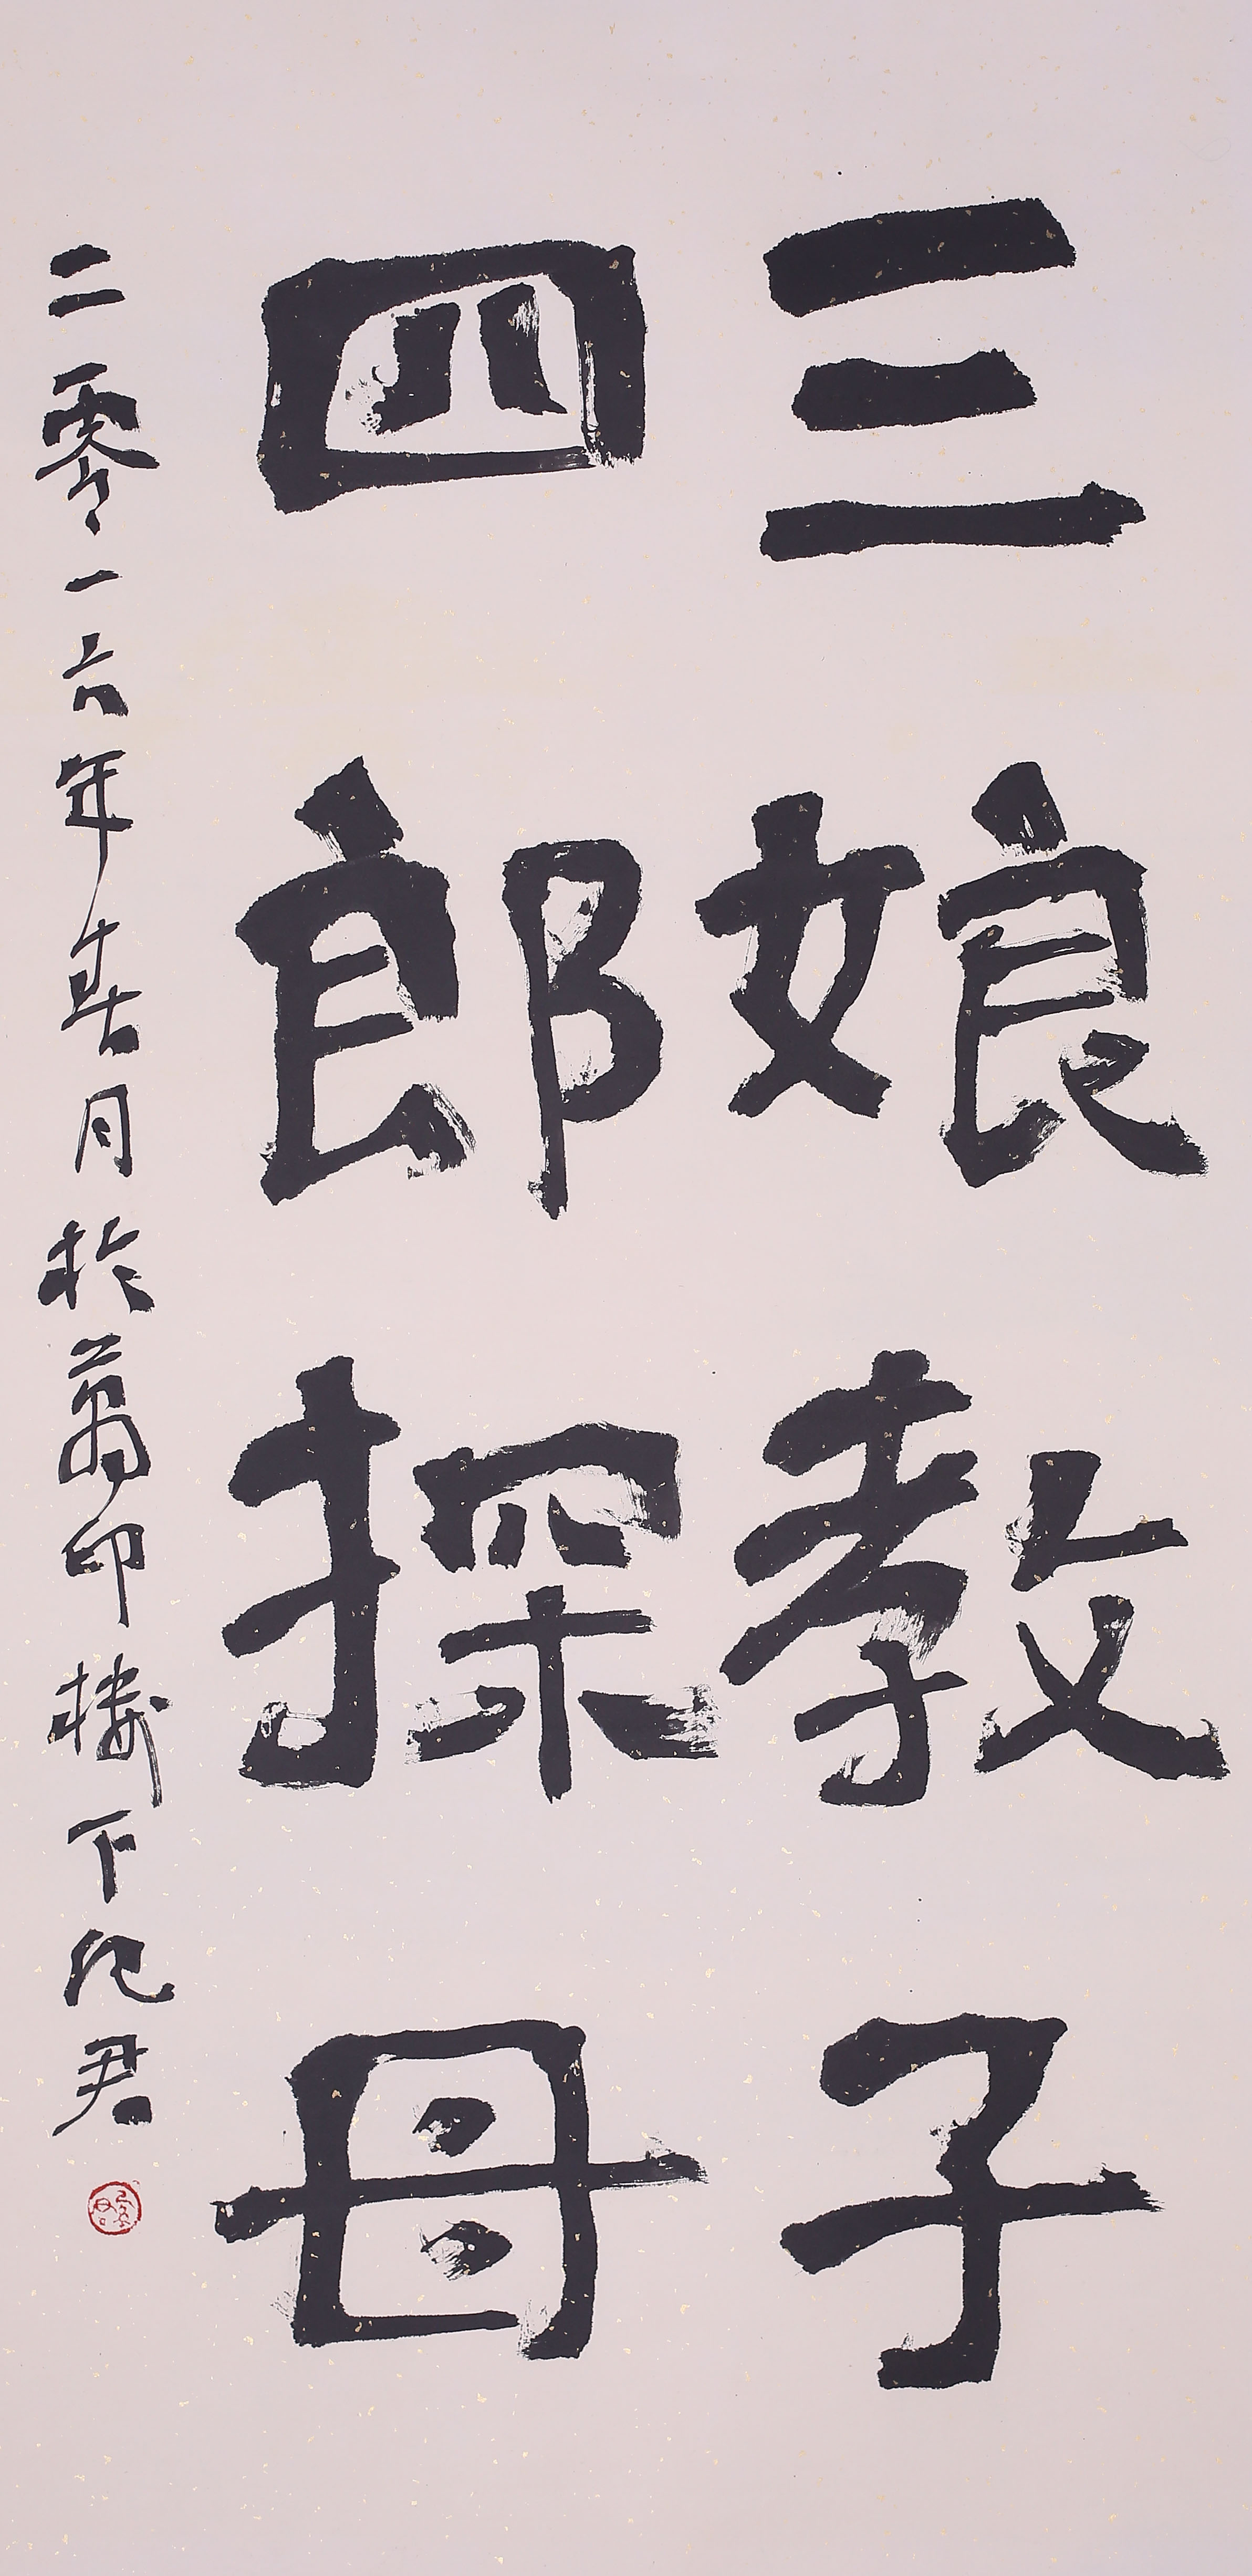 三娘教子
四郎探母
二零一六年春月於萬印樓下紀君